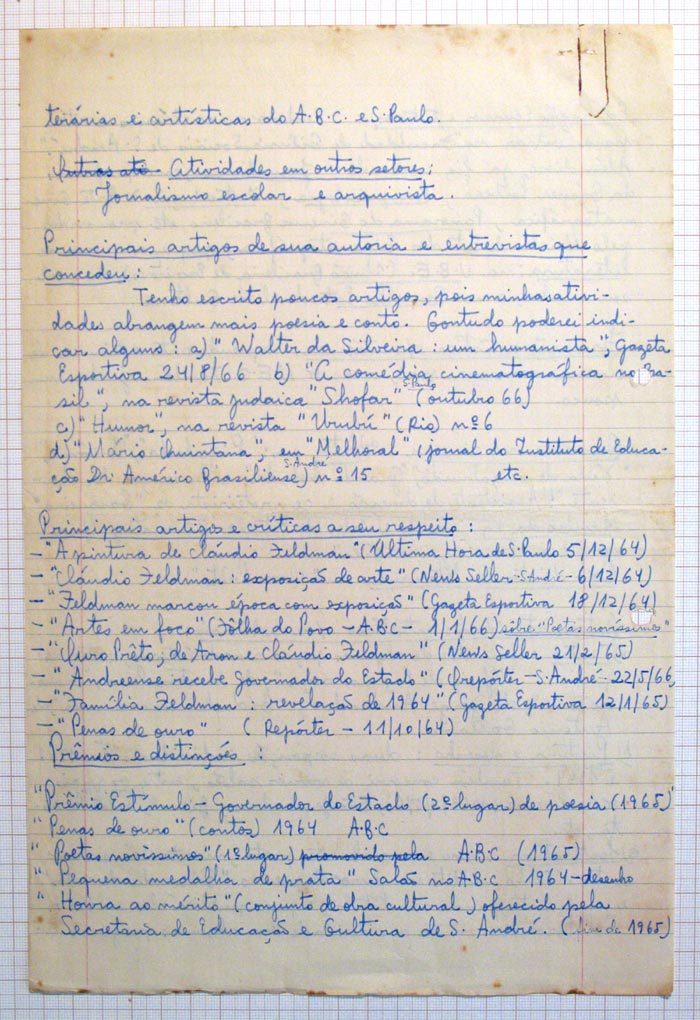 terárias e artísticas do A.B.C. e S. Paulo.
Outras ati- Atividades em outros setores:
Jornalismo escolar e arquivista.
Principais artigos de sua autoria e entrevistas que
concedeu:
Tenho escrito poucos artigos, pois minhas ativi-
dades abrangem mais poesia e conto. Contudo poderei indi-
car alguns: a) "Walter da Silveira: um humanista", Gazeta
Esportiva 24/8/66 b) "A comédia cinematográfica no Bra-
sil", na revista judaica "Shofar" S. Paulo (outubro 66)
c) "Humor", na revista "Urubú" (Rio) nº 6
d) "Mário Quintana", em "Melhoral" (jornal do Instituto de Educa-
ção Dr. Américo Brasiliense S. André) nº 15 etc.
Principais artigos e críticas a seu respeito:
- "A pintura de Cláudio Feldman" (Última Hora de S. Paulo 5/12/64)
- "Cláudio Feldman: exposição de arte" (News Seller - S. André - 6/12/64)
- "Feldman marcou época com exposição" (Gazeta Esportiva 18/12/64)
- "Artes em foco" (Fôlha do Povo - A.B.C - 1/1/66) sôbre "Poetas novíssimos"
- "Ouro Prêto, de Aron e Cláudio Feldman" (News Seller 21/2/65)
- "Andreense recebe Governador do Estado" (O repórter - S. André - 22/5/66)
- "Família Feldman: revelação de 1964" (Gazeta Esportiva 12/1/65)
- "Penas de ouro" (Repórter - 11/10/64)
Prêmios e distinções:
"Prêmio Estímulo - Governador do Estado (2º lugar) de poesia (1965)"
"Penas de ouro" (contos) 1964 A.B.C
"Poetas novíssimos" (1º lugar) promovido pela A.B.C (1965)
"Pequena medalha de prata" Salão no A.B.C 1964 - desenho
"Honra ao mérito" (conjunto de obra cultural) oferecido pela
Secretaria de Educação e Cultura de S. André. (fim de 1965)